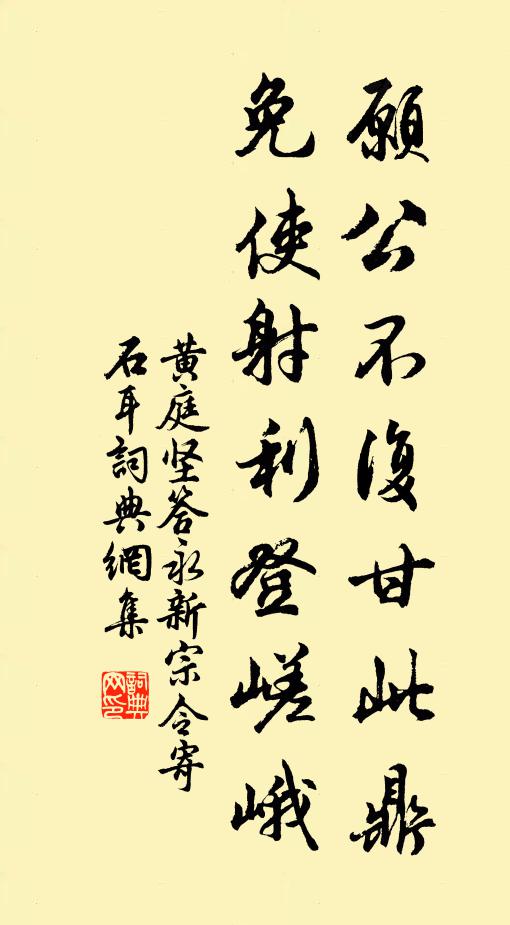 願公不復甘此鼎
免使射利登嵯峨
黄庭坚答永新宗令寄
石耳詞典網集
詞典網印